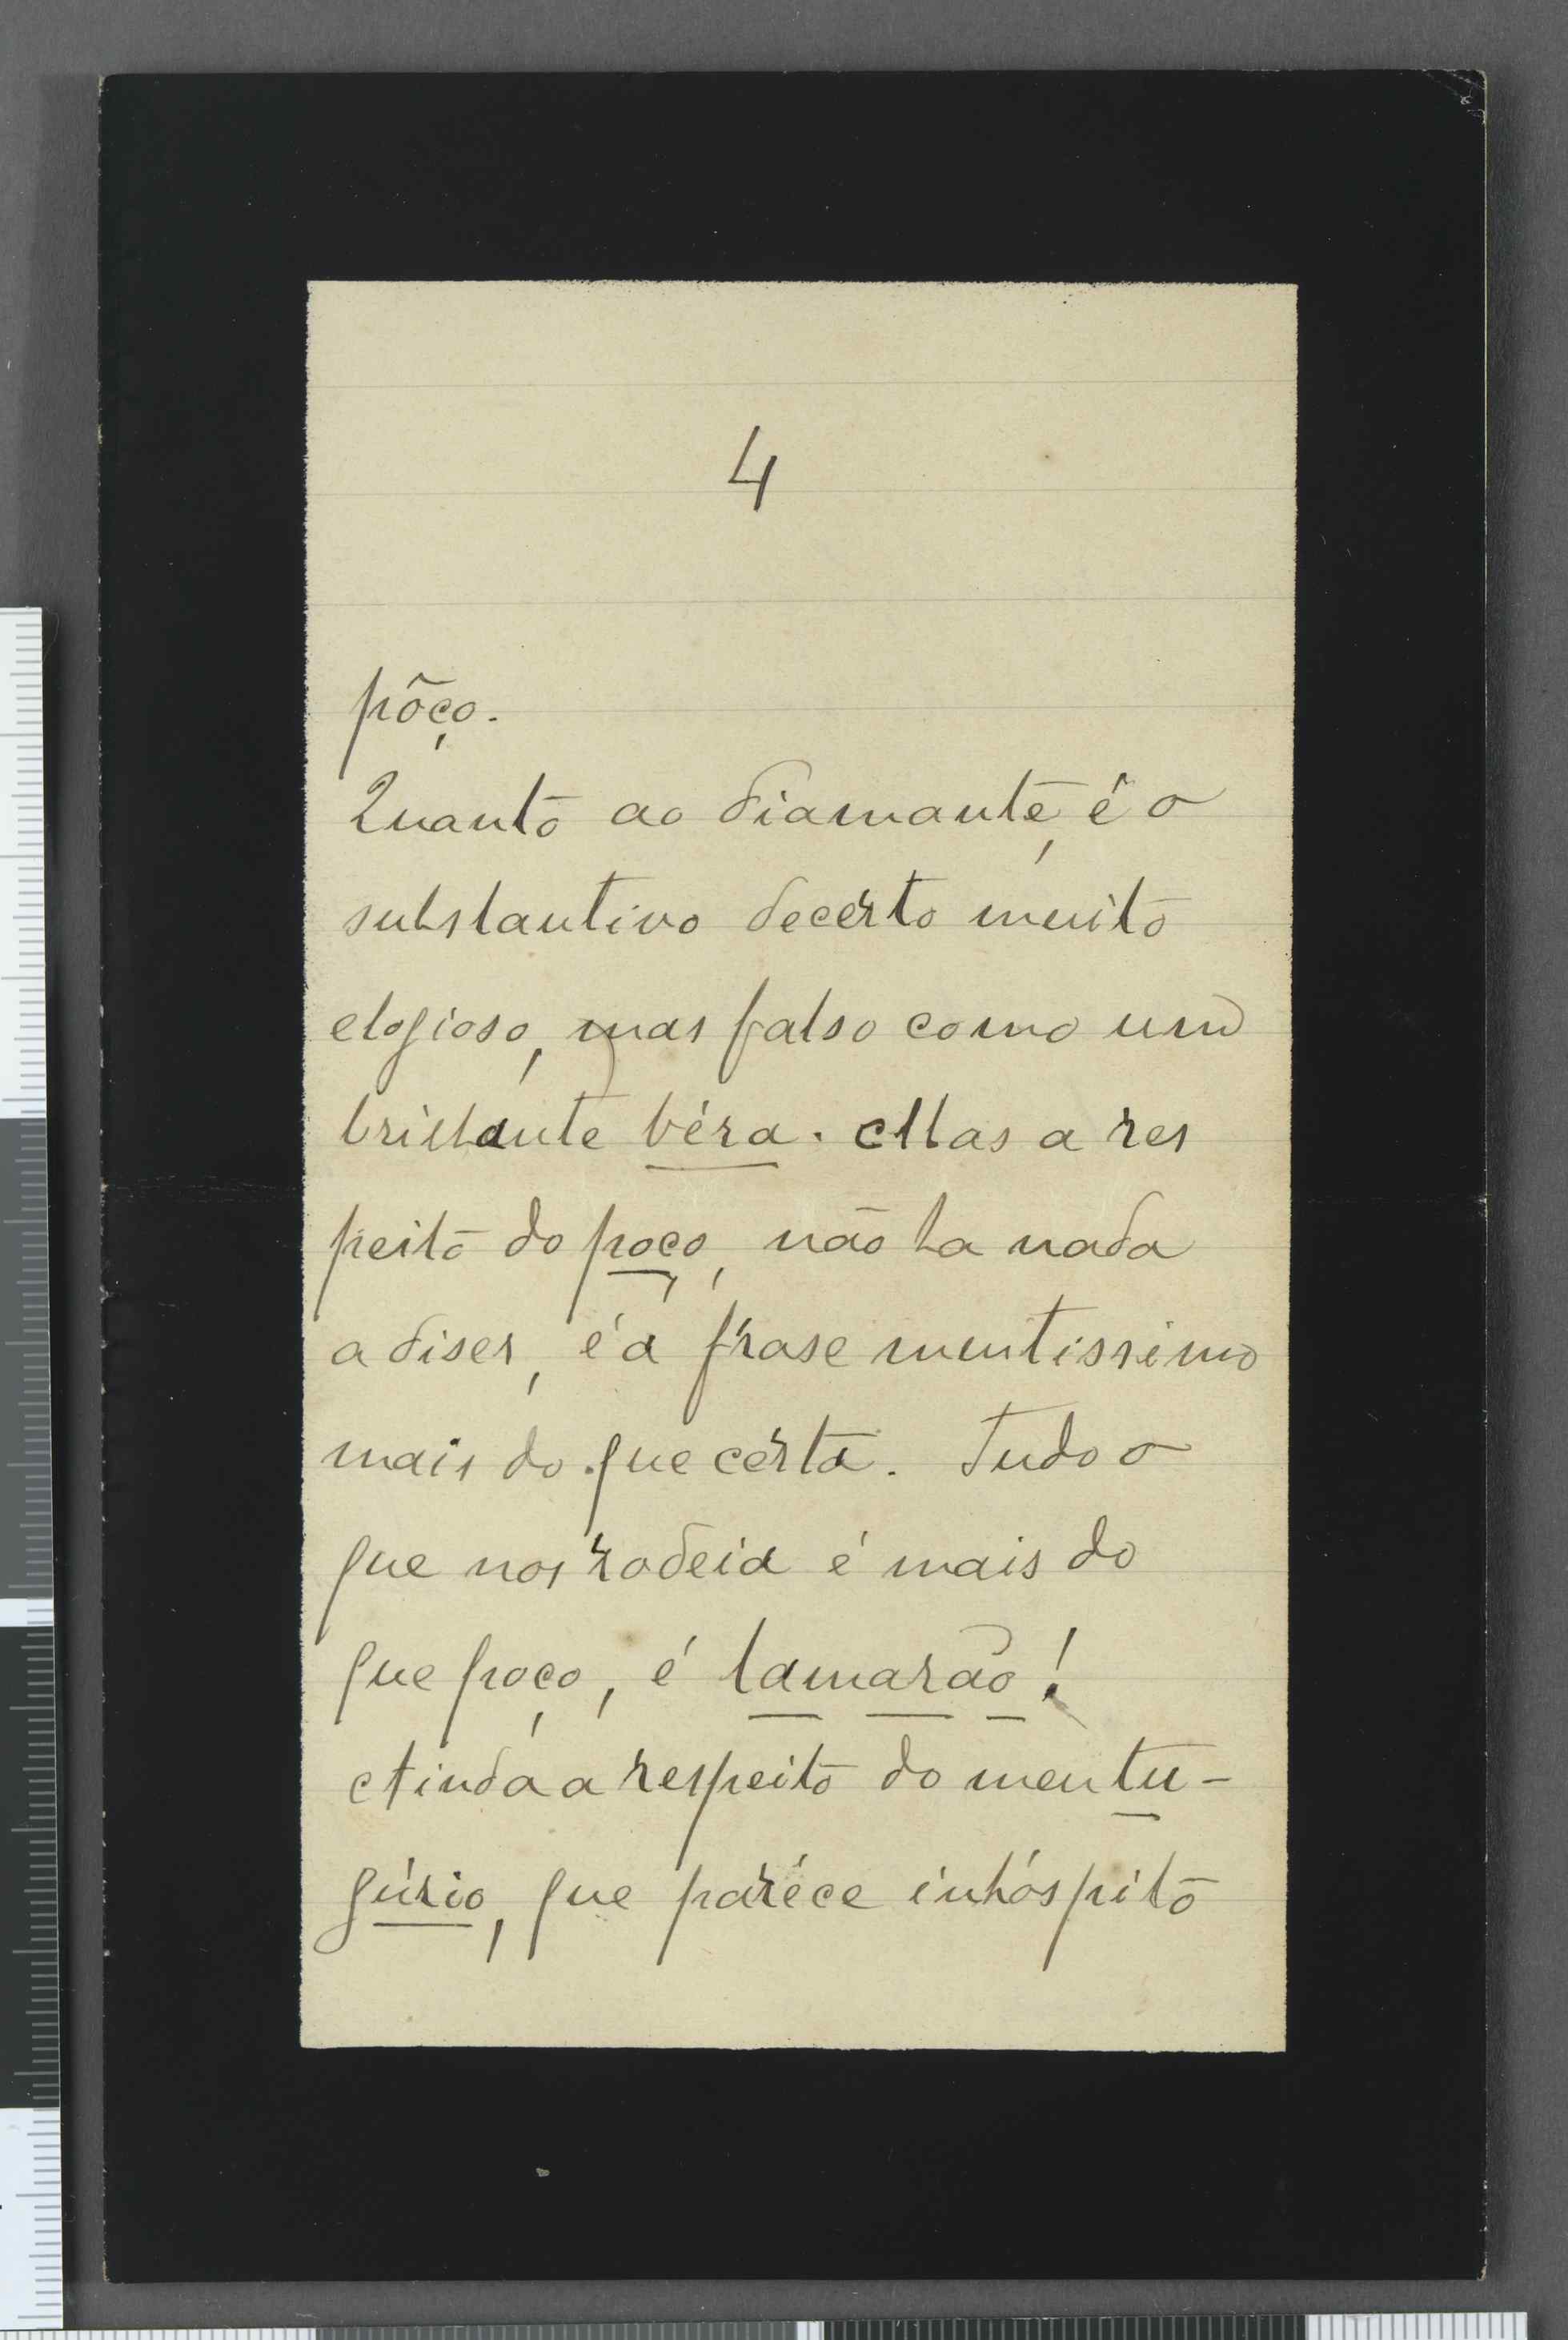 4
pôço.
Quanto ao diamante, é o
substantivo decerto muito
elogioso, mas falso como um
brilhante béra. Mas a res
peito do poço, não ha nada
a diser, é a frase muitissimo
mais do que certa. Tudo o
que nos rodeia é mais do
que poço, é lamarão!
Ainda a respeito do meu tu-
gúrio, que paréce inhóspito